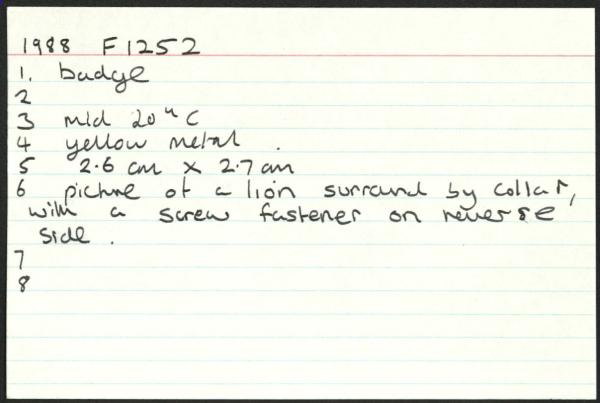 1988 F1252
1. badge
2
3 mid 20th C
4 yellow metal .
5 2.6 cm x 2.7 cm
6 picture of a lion surround by collar,
with a screw fastener on reverse
side .
7
8